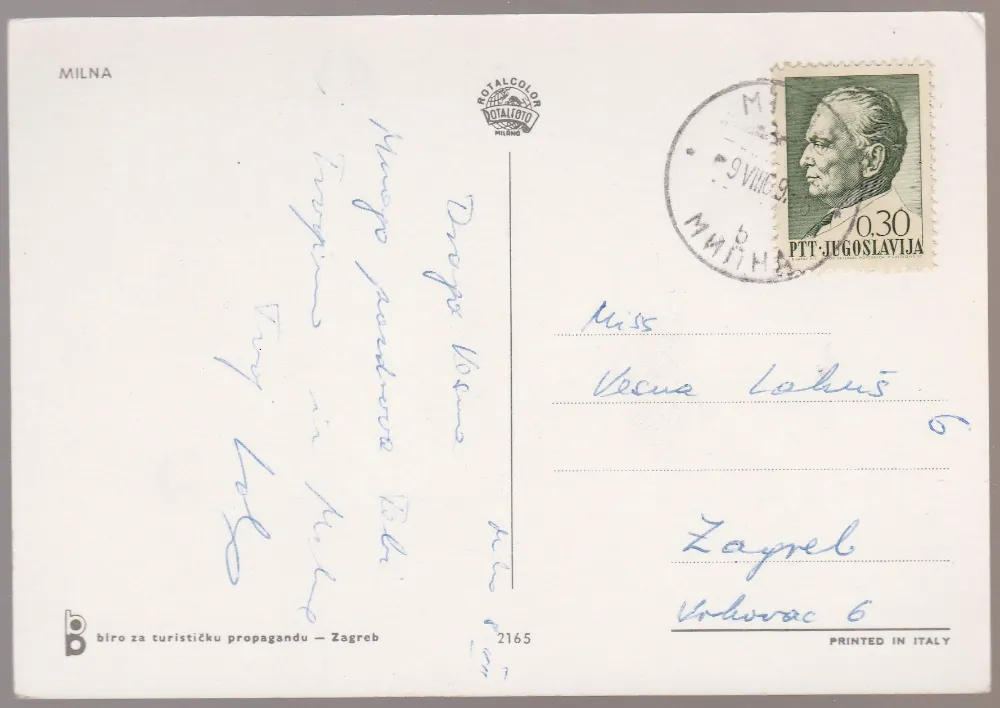 MILNA
ROTALCOLOR
ROTALFOTO
MILANO
9 VIII 69
b
МИЛНА
0,30
PTT·JUGOSLAVIJA
Draga Vesna
Mnogo pozdrava Tebi
i Tvojima iz Milne
Tvoj
Miss
Vesna Lakuš
6
Zagreb
Vrhovac 6
biro za turističku propagandu — Zagreb
2165
PRINTED IN ITALY